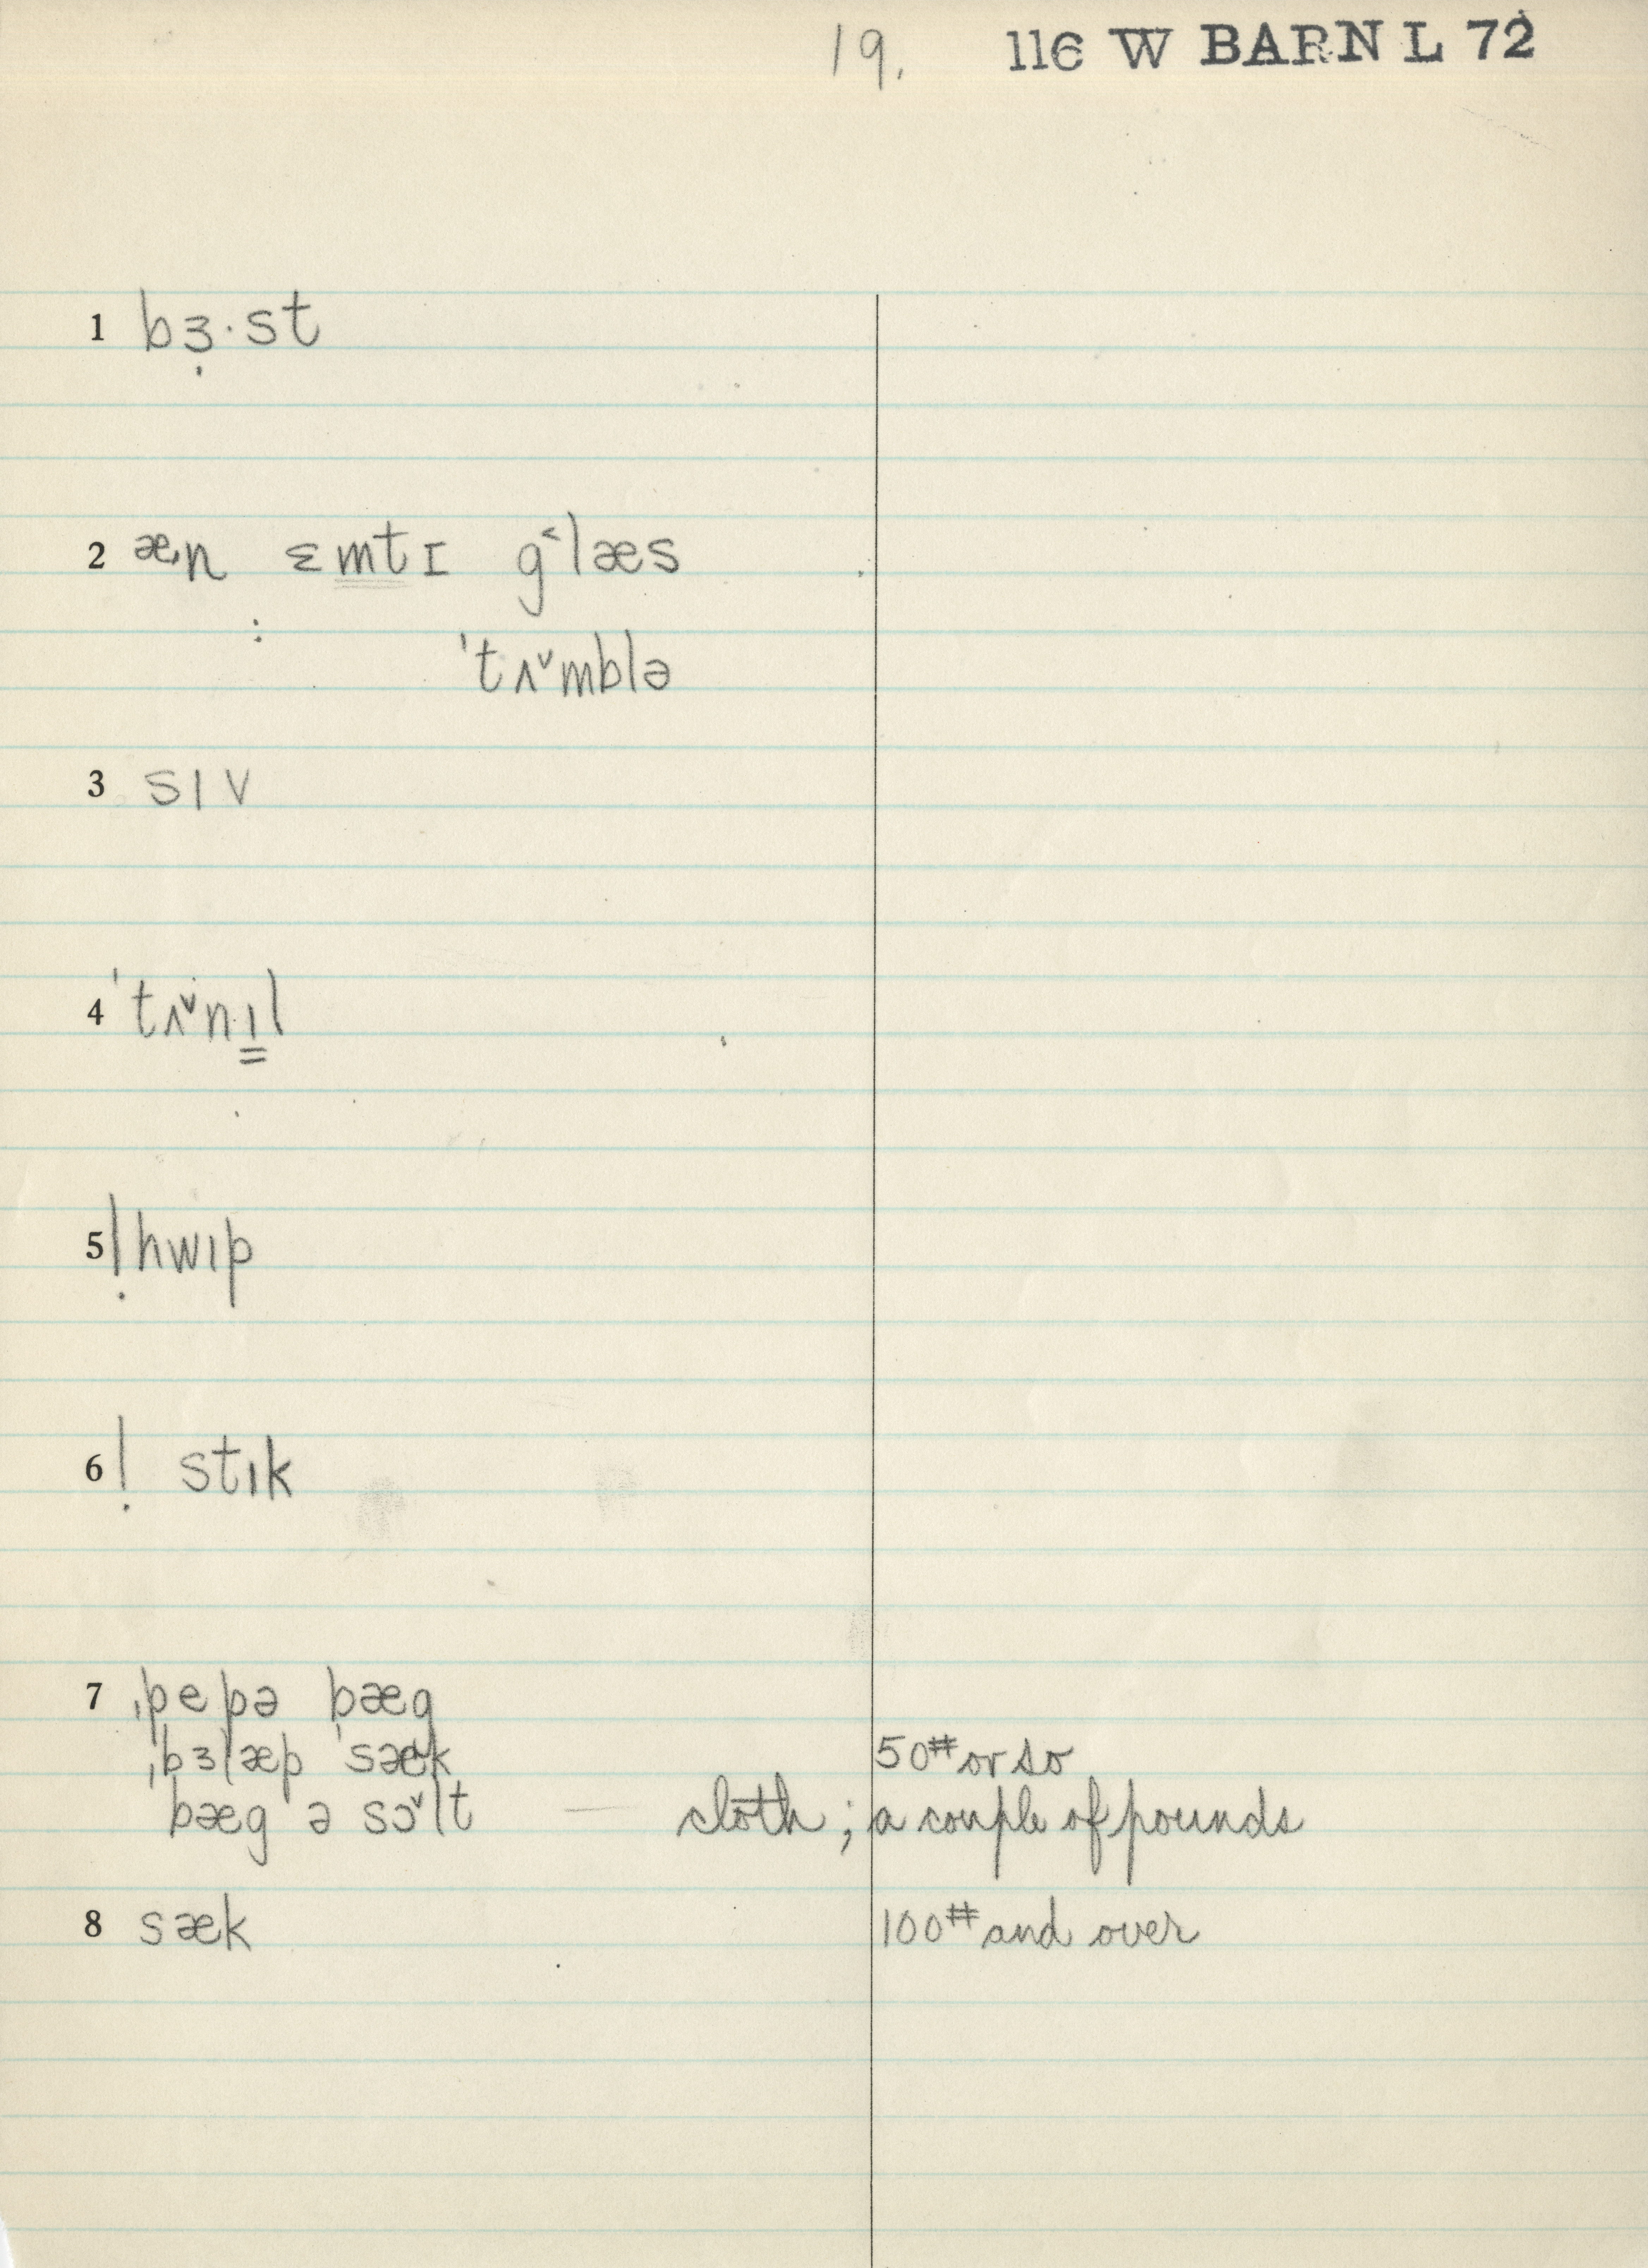 19. 116 W BARN L 72
1 bɜ̣·st
2 æ̩n ɛm̳t̳ɪ g˂læs
: ˈtʌ˅mblə
3 sɪv
4 ˈtʌ˅nɪ̳l
5 ! hwɪp
6 ! stɪk
7 ˌpepə bæg
ˌbɜlæp ˈsæk 50# or so
bæg ə sɔ˅lt — cloth; a couple of pounds
8 sæk 100# and over